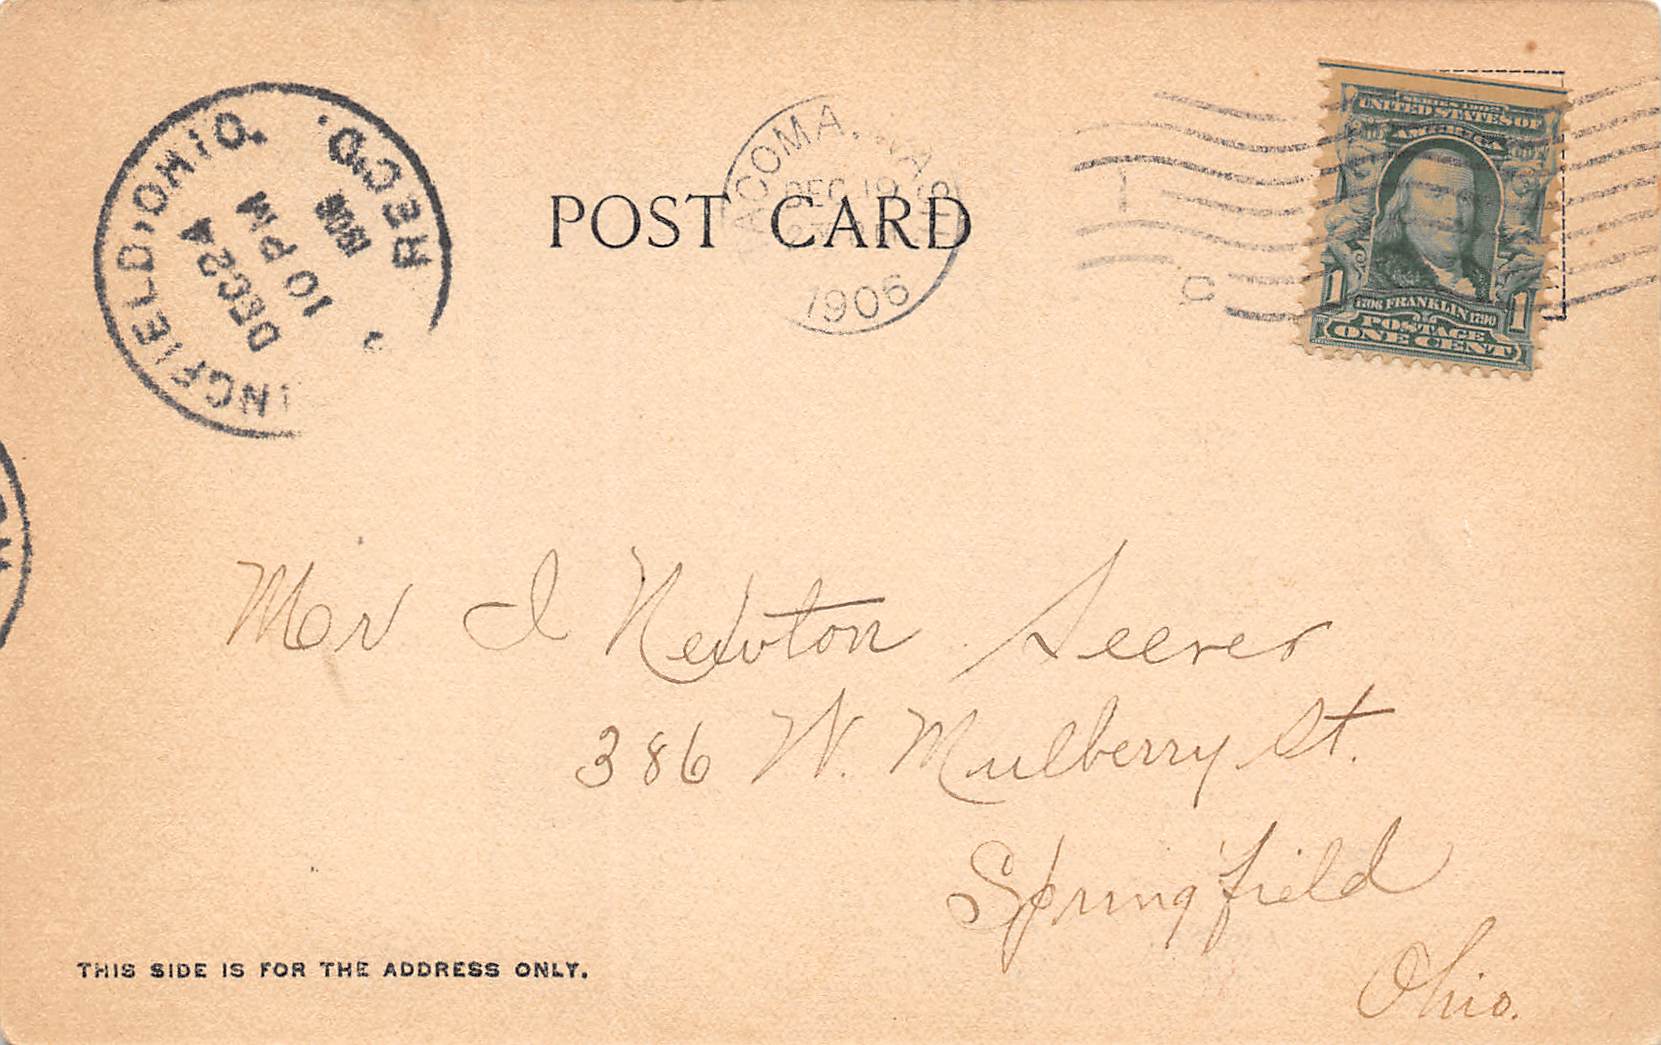 SERIES 1902
UNITED STATES OF
AMERICA
1706 FRANKLIN 1790
1 1
POSTAGE
ONE CENT
TACOMA,
DEC 19
1906
INGFIELD, OHIO.
REC'D.
DEC 24
10 PM
1906
POST CARD
Mr I Newton Seever
386 W. Mulberry St.
Springfield
Ohio.
THIS SIDE IS FOR THE ADDRESS ONLY.